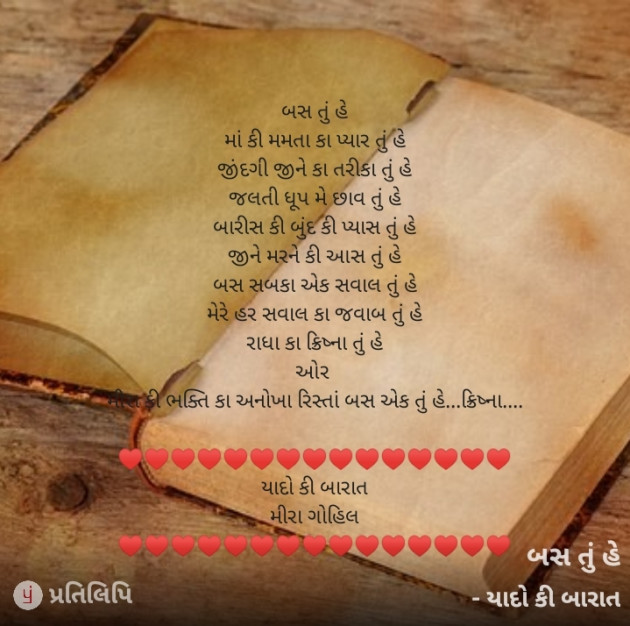 બસ તું હે
માં કી મમતા કા પ્યાર તું હે
જીંદગી જીને કા તરીકા તું હે
જલતી ધૂપ મે છાવ તું હે
બારીસ કી બુંદ કી પ્યાસ તું હે
જીને મરને કી આસ તું હે
બસ સબકા એક સવાલ તું હે
મેરે હર સવાલ કા જવાબ તું હે
રાધા કા ક્રિષ્ના તું હે
ઓર
કી ભક્તિ કા અનોખા રિસ્તાં બસ એક તું હે...ક્રિષ્ના....
યાદો કી બારાત
મીરા ગોહિલ
બસ તું હે
- યાદો કી બારાત
પ્રતિલિપિ